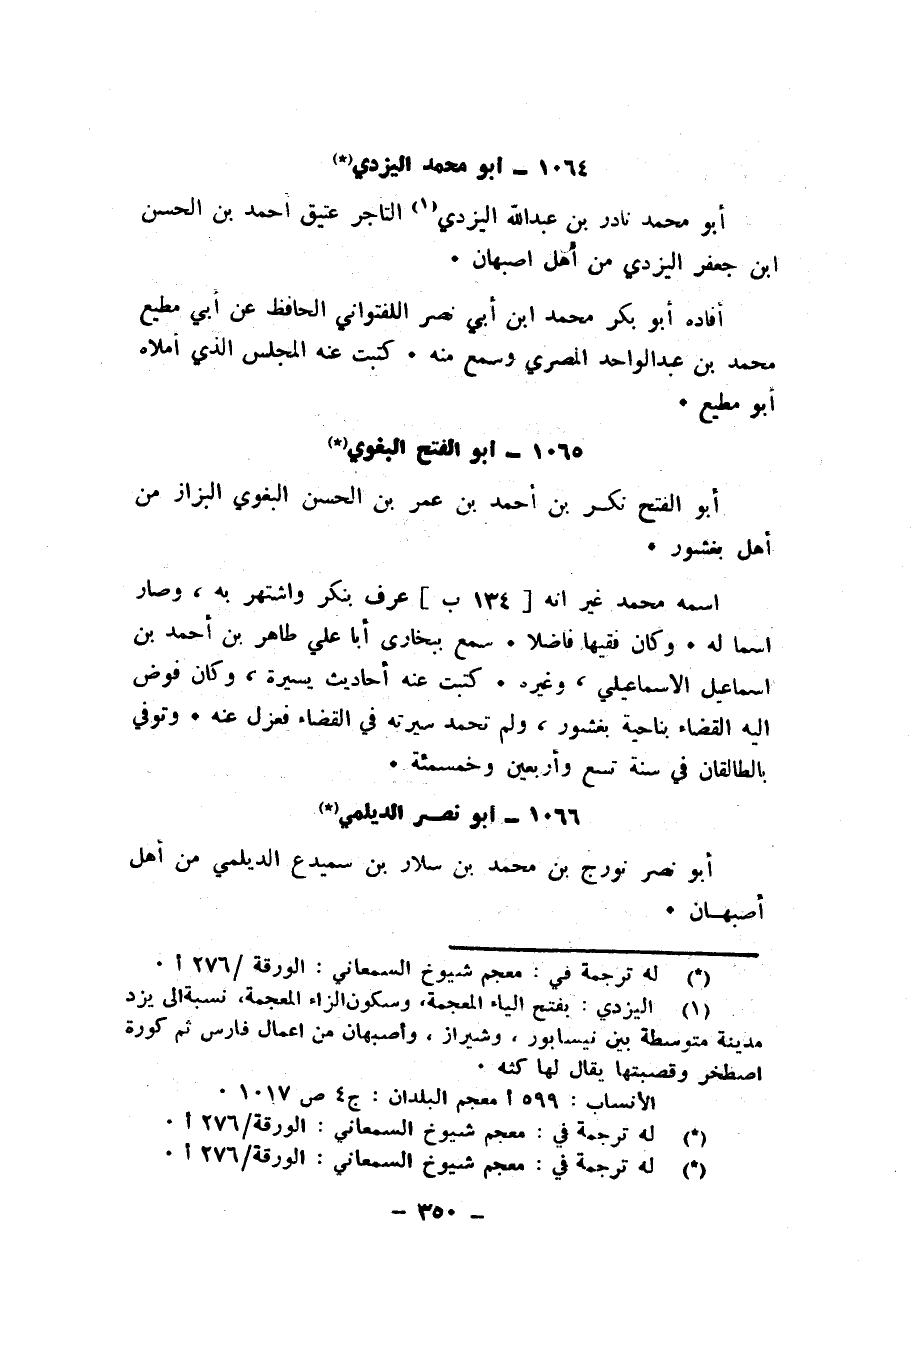 ١٠٦٤ – ابو محمد اليزدي(*)
أبو محمد نادر بن عبدالله اليزدي(١) التاجر عتيق احمد بن الحسن
ابن جعفر اليزدي من أهل اصبهان ٠
أفاده أبو بكر محمد ابن أبي نصر اللفتواني الحافظ عن أبي مطيع
محمد بن عبدالواحد المصري وسمع منه ٠ كتبت عنه المجلس الذي أملاه
أبو مطيع ٠
١٠٦٥ – ابو الفتح البغوي(*)
أبو الفتح نكــر بن أحمد بن عمر بن الحسن البغوي البزاز من
أهل بغشور ٠
اسمه محمد غير انه [ ١٣٤ ب ] عرف بنكر واشتهر به ، وصار
اسما له ٠ وكان فقيها فاضلا ٠ سمع ببخارى أبا علي طاهر بن أحمد بن
اسماعيل الاسماعيلي ، وغيره ٠ كتبت عنه أحاديث يسيرة ، وكان فوض
اليه القضاء بناحية بغشور ، ولم تحمد سيرته في القضاء فعزل عنه ٠ وتوفي
بالطالقان في سنة تسع وأربعين وخمسمئة ٠
١٠٦٦ – ابو نصــر الديلمي(*)
أبو نصر نورج بن محمد بن سلار بن سميدع الديلمي من أهل
أصبهــان ٠
(*) له ترجمة في : معجم شيوخ السمعاني : الورقة /٢٧٦ أ ٠
(١) اليزدي : بفتح الياء المعجمة، وسكون الزاء المعجمة، نسبة الى يزد
مدينة متوسطة بين نيسابور ، وشيراز ، وأصبهان من اعمال فارس ثم كورة
اصطخر وقصبتها يقال لها كثه ٠
الأنساب : ٥٩٩ أ معجم البلدان : ج٤ ص ١٠١٧ ٠
(*) له ترجمة في : معجم شيوخ السمعاني : الورقة/٢٧٦ أ ٠
(*) له ترجمة في : معجم شيوخ السمعاني : الورقة/٢٧٦ أ ٠
– ٣٥٠ –